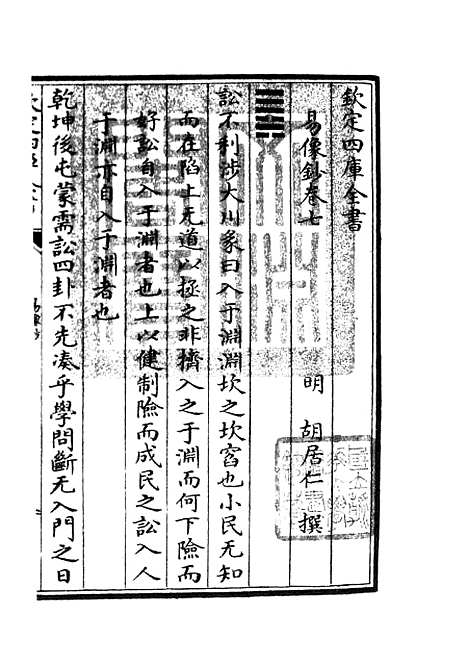 欽定四庫全書
易像鈔卷七
明 胡居仁 撰
訟不利涉大川象曰入于淵淵坎之坎窞也小民无知
而在陷上无道以拯之非擠入之于淵而何下險而
好訟自入于淵者也上以健制險而成民之訟入人
于淵亦自入于淵者也
乾坤後屯蒙需訟四卦不先凑乎學問斷无入門之日